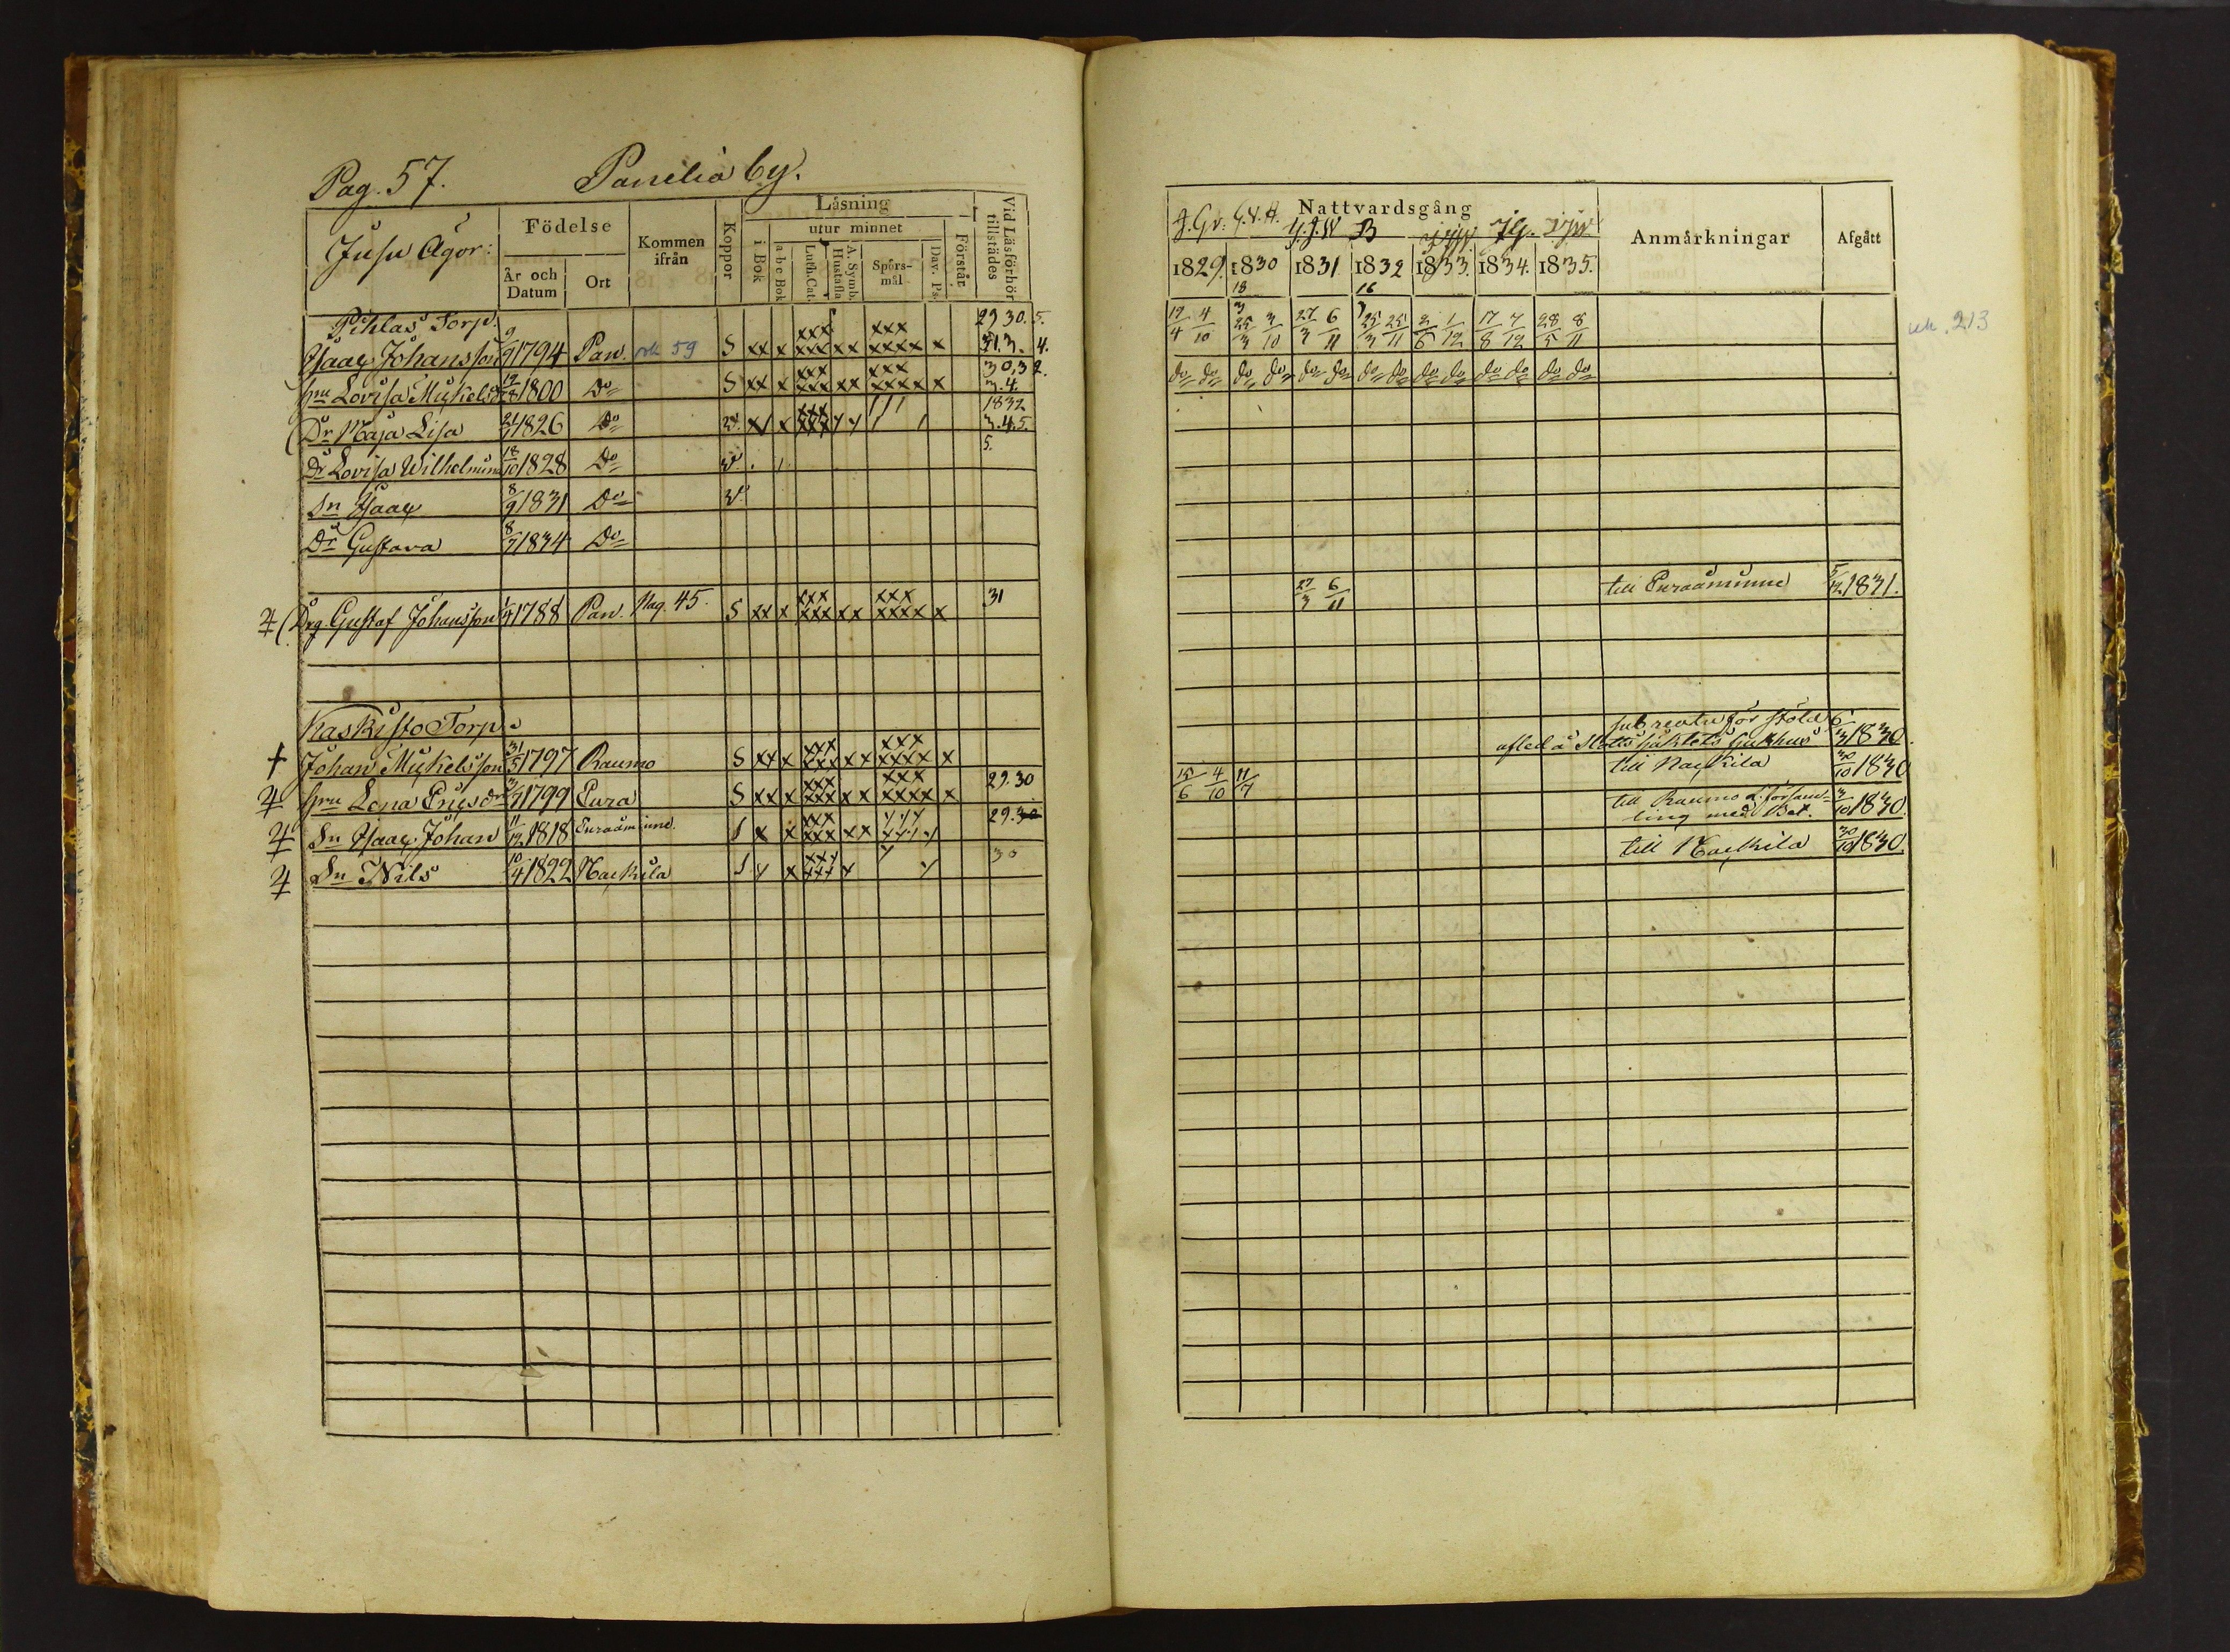 Pag. 57. Panelia by.
Jusu Ägor: Födelse År och Datum Ort Kommen ifrån Koppor Läsning i Bok utur minnet a b c Bok Luth. Cat. Hustafla A. Symb. Spörsmål Dav. Ps. Förstår Vid Läsförhör tillstädes
Nattvardsgång Anmärkningar Afgått
1829. 1830 1831 1832 1833. 1834. 1835.
Pihlas Torp. 29 30. 5.
Isaac Johansson 1794 Pan. 59 S xx x xxx xxx xx xxx xxxx x 31.3. 4. 12/4 4/10 25/3 3/10 27/3 6/11 25/3 25/11 2/6 1/12 17/8 7/12 28/5 8/11
hu Lovisa Mickelsdr 1800 Do S xx x xxx xxx xx xxx xxxx x 30,32. 3.4. do do do do do do do do do do do do do do
Dr Maja Lisa 1826 Do 1832 3.4.5.
Dr Lovisa Wilhelmina 18/10 1828 Do 5.
Sn Isaac 8/9 1831 Do
Dr Gustava 8/7 1834 Do
Drg. Gustaf Johansson 1788 Pan. Pag. 45. S xx x xxx xxx xx xxx xxxx x 31 27/3 6/11 till Euraåminne 5/12 1831.
Kaskisto Torp
Johan Mickelsson 31/5 1797 Raumo S xx x xxx xxx xx xxx xxxx x för stöld afled å Slotts häktets sjukhus 1830.
hu Lena Ericsdr 1799 Eura S xx x xxx xxx xx xxx xxxx x 29.30 15/6 4/10 11/7 till Nackila 30/10 1830
Sn Isaac Johan 11/12 1818 Euraåminne. 29.30 till Raumo L. församling med Bet. 3/10 1830.
Sn Nils 10/4 1822 Nackila 30 till Nackila 30/10 1830.
213